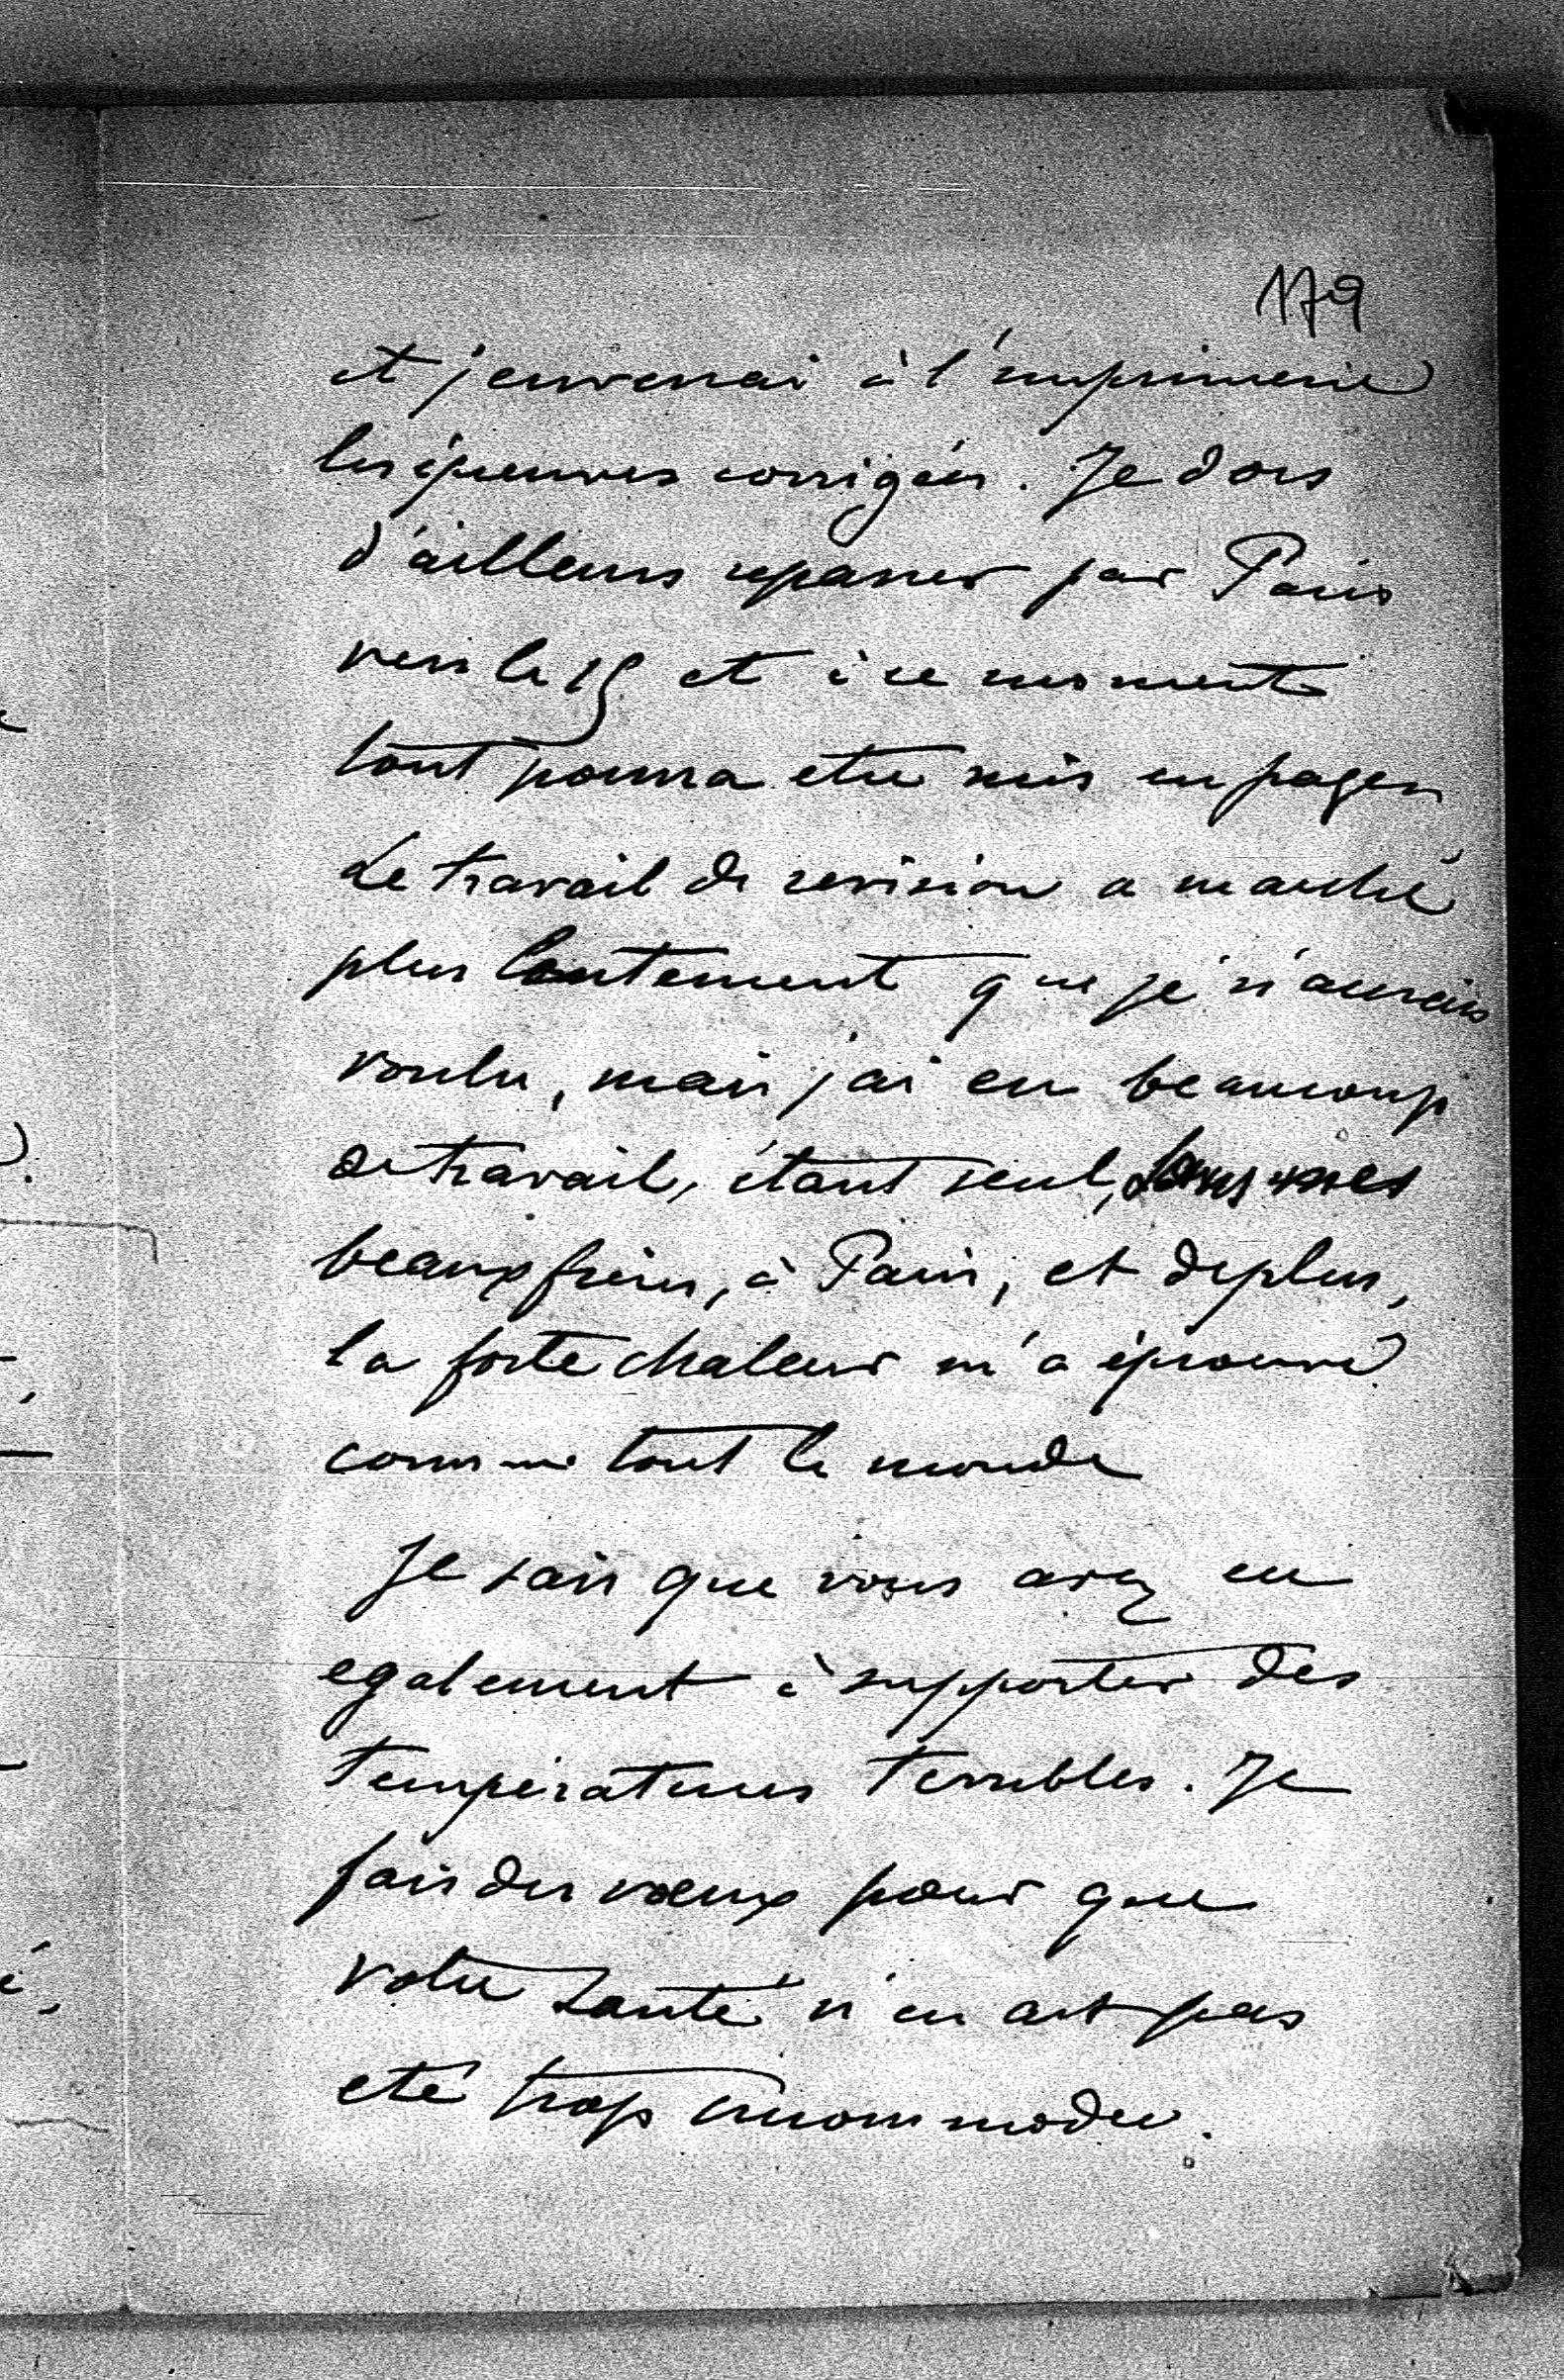 179
et j'enverrai à l'imprimerie
les épreuves corrigées. Je dois
d'ailleurs repasser par Paris
vers le 15 et à ce moment
tout pourra etre mis en pages
Le travail de revision a marché
plus lentement que je n'aurais
voulu, mais j'ai eu beaucoup
de travail, étant seul, sans mes
beaux frères, à Paris, et de plus,
la forte chaleur m'a éprouvé
comme tout le monde
Je sais que vous avez eu
egalement à supporter des
températures terribles. Je
fais des vœux pour que
votre santé n'en ait pas
eté trop incommodée.